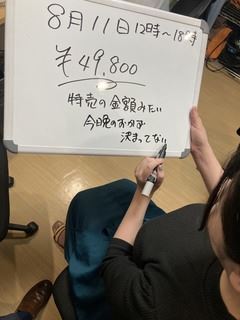 8月11日 12時～18時
¥49,800
特売の金額みたい
今晩のおかず
決まってない